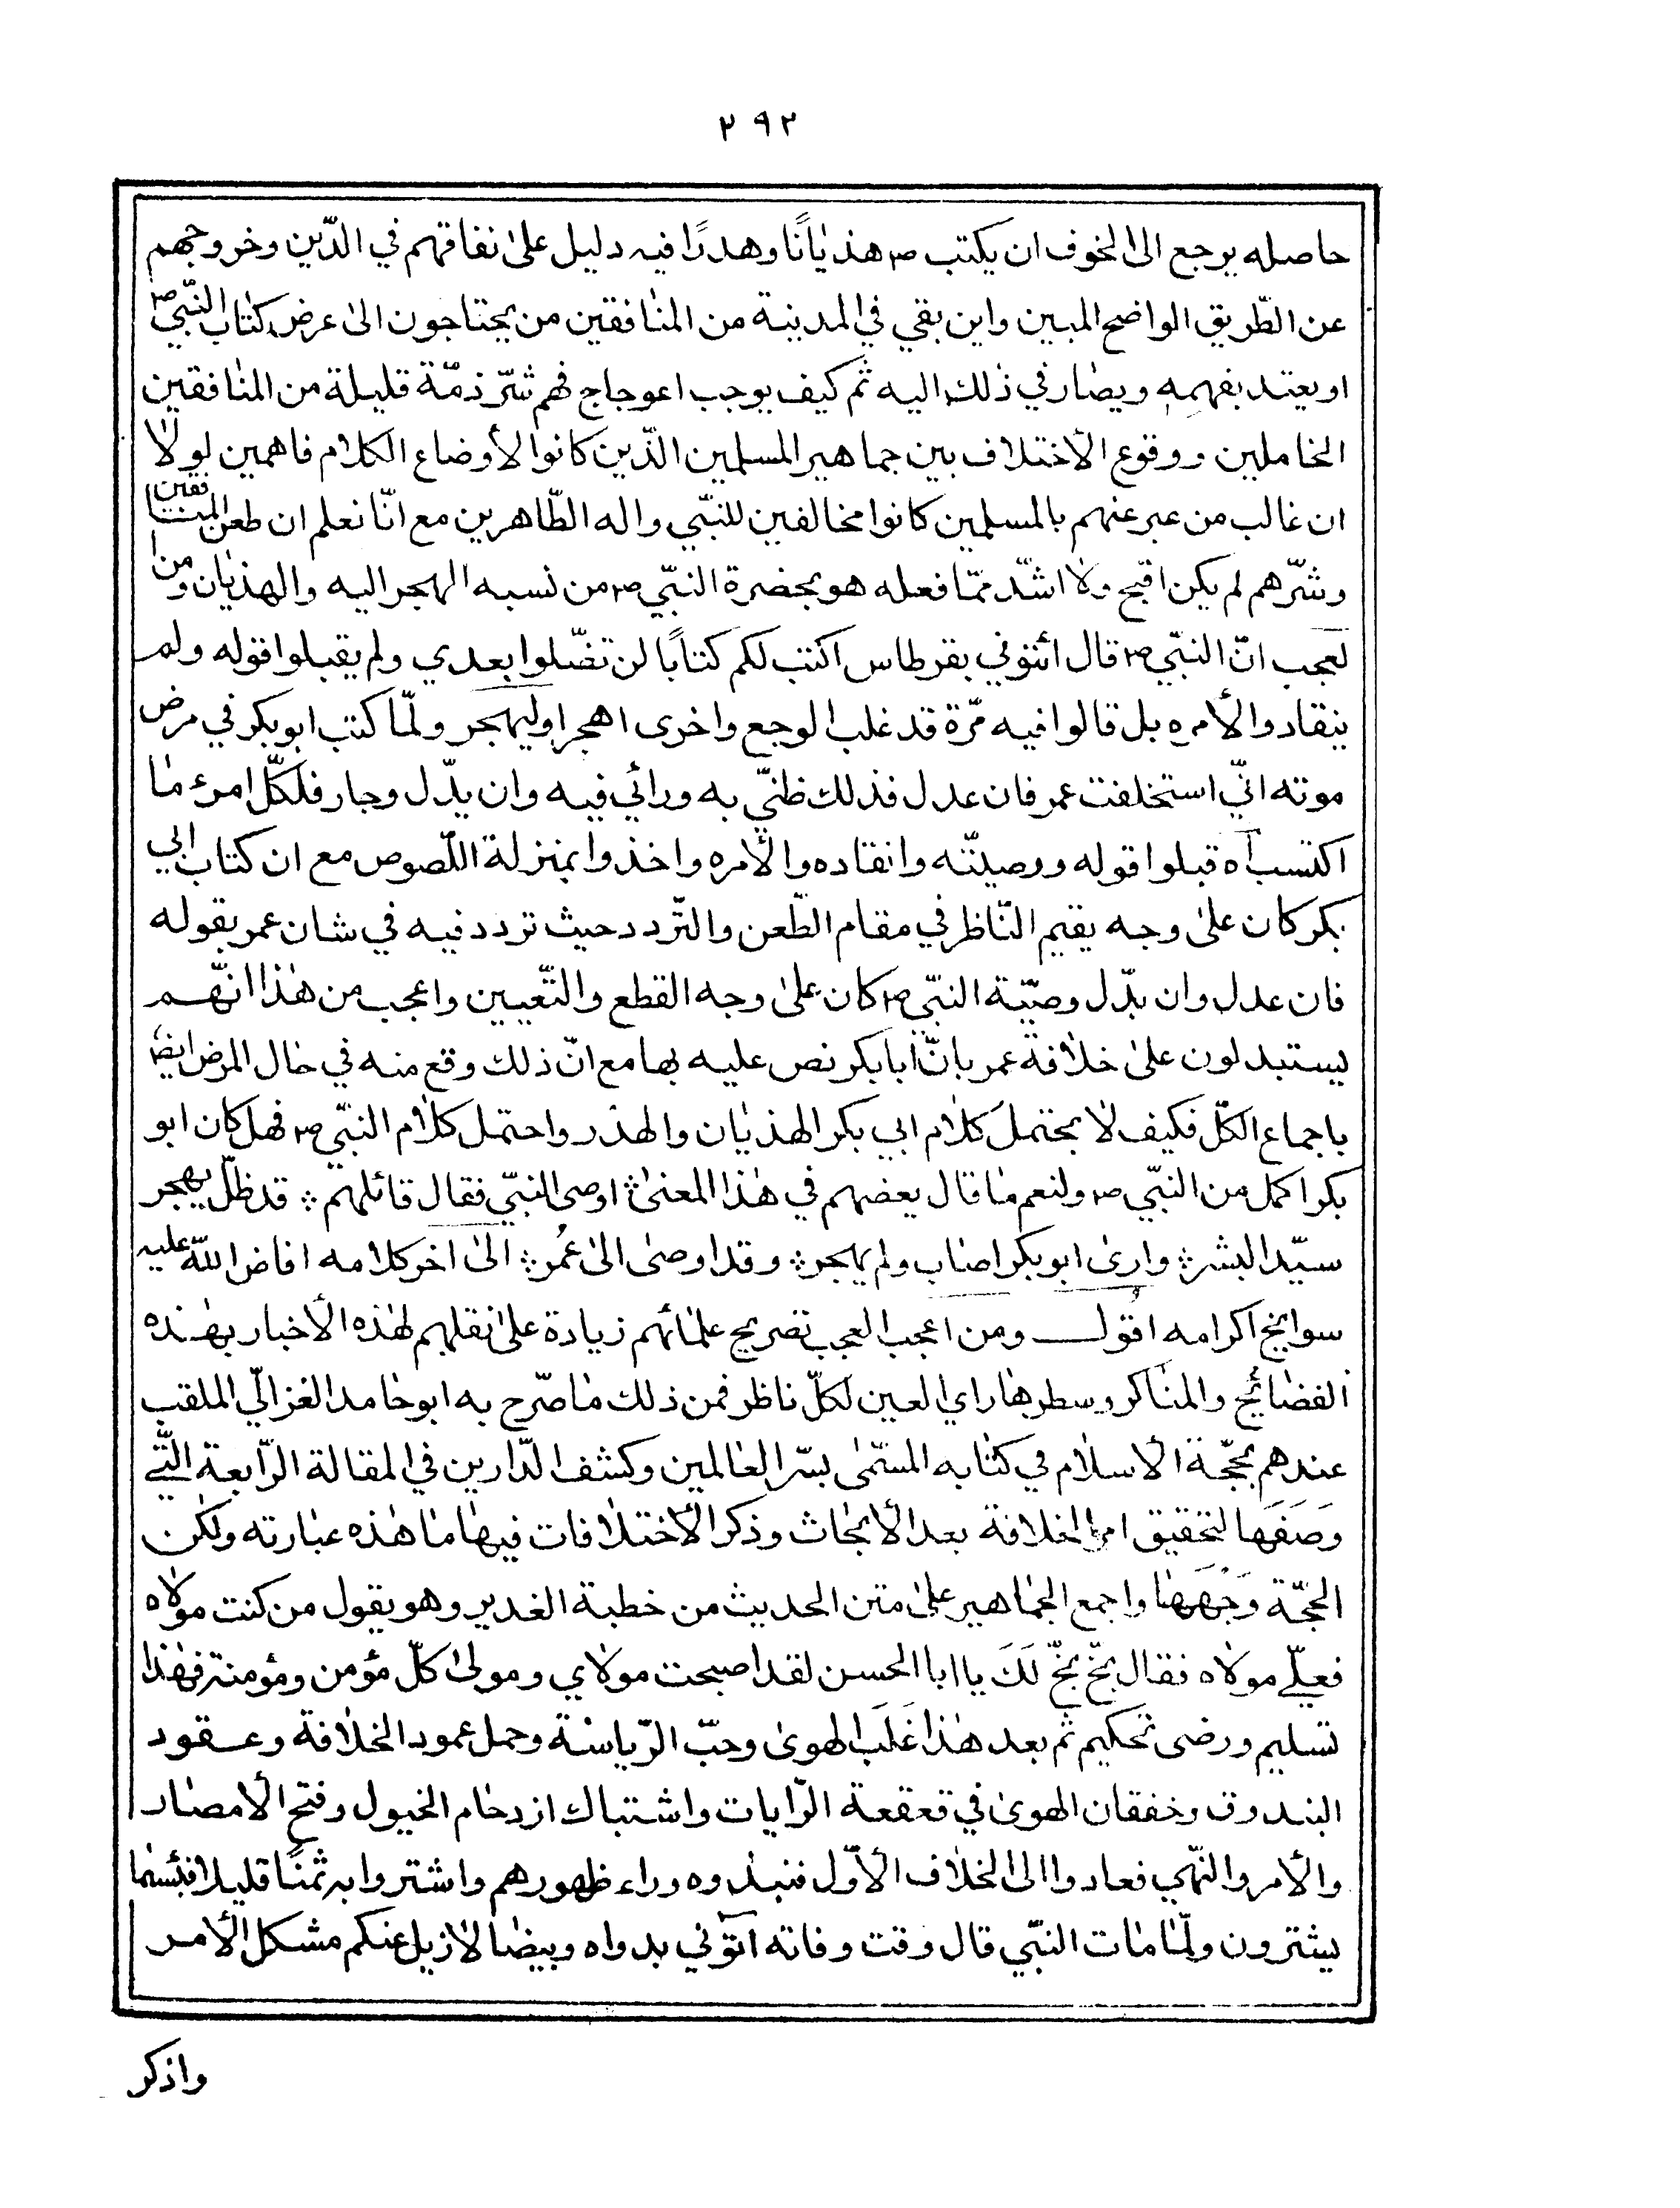 ٢٩٢
حاصله يرجع الى الخوف ان يكتب ص هذيانًا وهدرًا فيه دليل على نفاقهم في الدّين وخروجهم
عن الطّريق الواضح المبين واين بقي في المدينة من المنافقين من يحتاجون الى عرض كتاب النّبيّ ص
او يعتد بفهمه ويصار في ذلك اليه ثم كيف يوجب اعوجاج فهم شرّ ذمّة قليلة من المنافقين
الخاملين ووقوع الأختلاف بين جماهير المسلمين الذّين كانوا لأوضاع الكلام فاهمين لولا
ان غالب من عبر عنهم بالمسلمين كانوا مخالفين للنبّي واله الطّاهرين مع انّا نعلم ان طعن المنافقين
وشرّهم لم يكن اقبح ولا اشدّ ممّا فعله هو بحضرة النبّي ص من نسبه الهجر اليه والهذيان ومن
لعجب انّ النبّي ص قال ائتوني بقرطاس اكتب لكم كتابًا لن تضّلوا بعدي ولم يقبلوا قوله ولم
ينقادوا لأمره بل قالوا فيه مرّة قد غلب الوجع واخرى اهجر اوليهجر ولمّا كتب ابوبكر في مرض
موته انّي استخلفت عمر فان عدل فذلك ظنّي به ورائي فيه وان بدّل وجار فلكلّ امرء ما
اكتسب اه قبلوا قوله ووصيتّه وانقادوا لأمره واخذوا بمنزلة اللّصوص مع ان كتاب ابي
بكر كان على وجه يقيم النّاظر في مقام الطّعن والتّردد حيث تردد فيه في شان عمر بقوله
فان عدل وان بدّل وصيّة النبّي ص كان على وجه القطع والتّعيين واعجب من هذا انّهم
يستبدلون على خلافة عمر بانّ ابابكر نص عليه بها مع انّ ذلك وقع منه في حال المرض ايضا
باجماع الكلّ فكيف لا يحتمل كلام ابي بكر الهذيان والهذر واحتمل كلام النبّي ص فهل كان ابو
بكر اكمل من النبّي ص ولنعم ما قال بعضهم في هذا المعنى ؞ اوصى النبّي فقال قائلهم ؞ قد ظلّ يهجر
سيّد البشر ؞ وارى ابوبكر اصاب ولم يهجر ؞ وقد اوصى الى عُمر ؞ الى اخر كلامه افاض اللّه عليه
سوابخ اكرامه اقول ومن اعجب العجب تصريح علمائهم زيادة على نقلهم لهذه الأخبار بهذه
الفضائح والمناكر وسطرها راي العين لكلّ ناظر فمن ذلك ما صرّح به ابو حامد الغزالّي الملقب
عندهم بحجّة الأسلام في كتابه المسّمى بسرّ العالمين وكشف الدّارين في المقالة الرّابعة الّتي
وَصَفَها لتحقيق امر الخلافة بعد الأبحاث وذكر الأختلافات فيها ما هذه عبارته ولكن
الحجّة وَجْهَها واجمع الجماهير على متن الحديث من خطبة الغدير وهو يقول من كنت مولاه
فعلّي مولاه فقال بخّ بخّ لَكَ يا ابا الحسن لقد اصبحت مولاي ومولى كلّ مؤمن ومؤمنة فهذا
تسليم ورضى تحكيم ثم بعد هذا غَلَبَ الهوى وحبّ الرّياسة وحمل عمود الخلافة وعقود
البندوق وخفقان الهوى في قعقعة الرّايات واشتباك ازدحام الخيول وفتح الأمصار
والأمر والنّهي فعادوا الى الخلاف الأوّل فنبذوه وراء ظهورهم واشتروا به ثمنًا قليلا فبئسما
يشترون ولمّا مات النبّي قال وقت وفاته آتوني بدواه وبيضا لازيل عنكم مشكل الأمر
واذكر